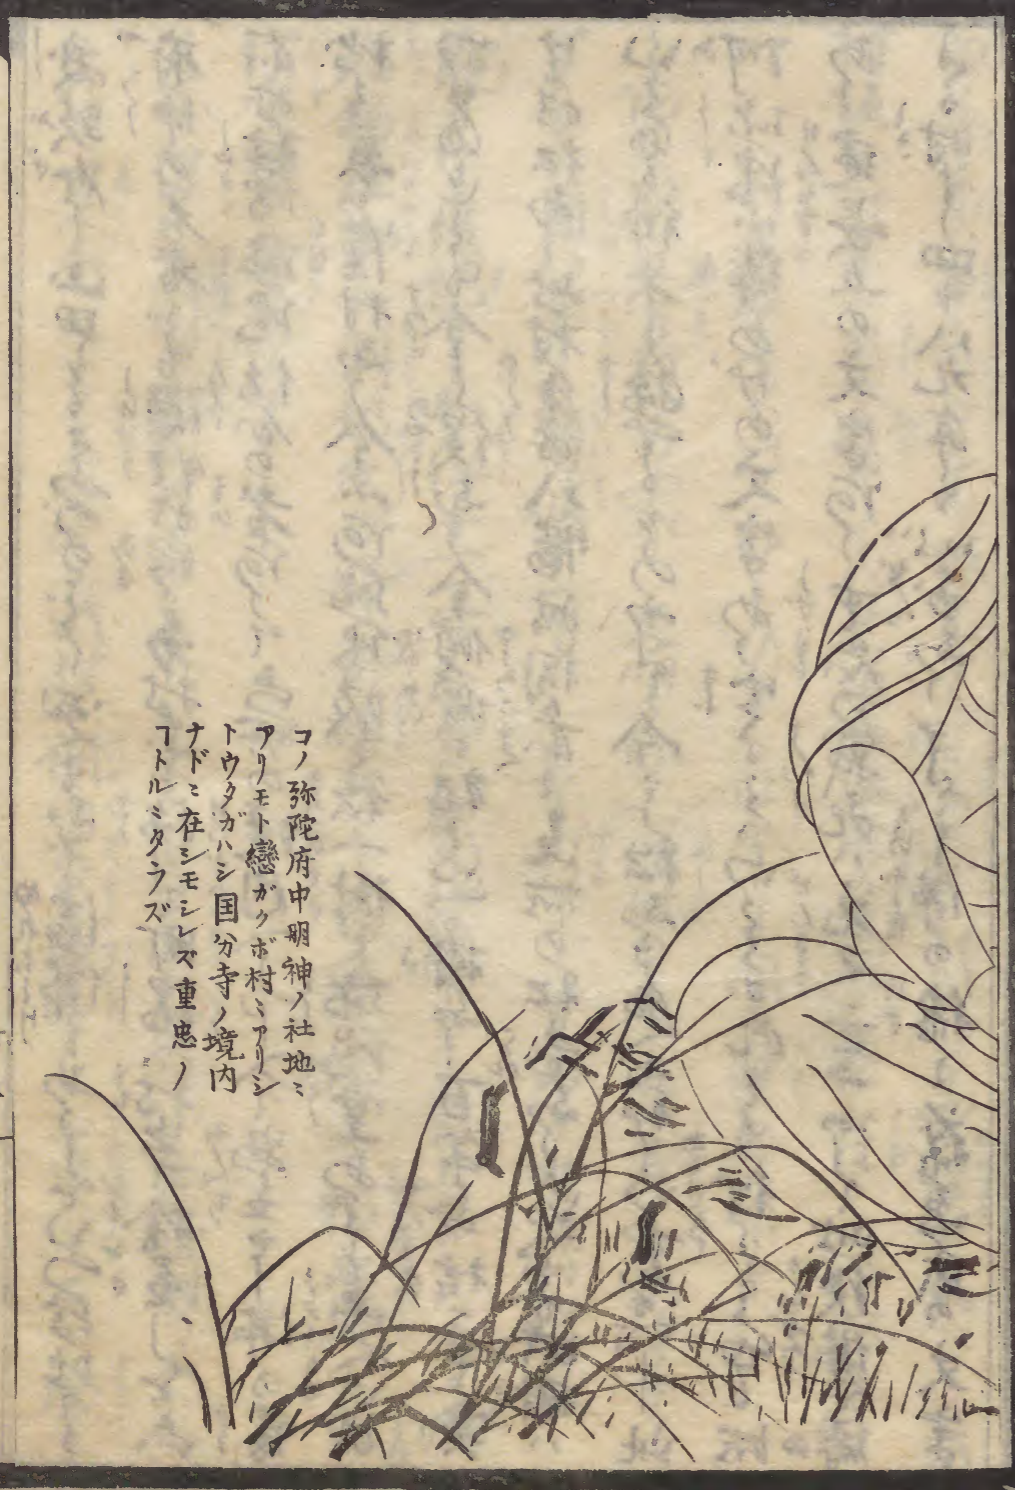 コノ弥陀府中明神ノ社地ミ
アリモト戀ガクボ村ミアリシ
トウタガハシ国分寺ノ境内
ナドミ在シモシレズ重忠ノ
フトルミタラズ